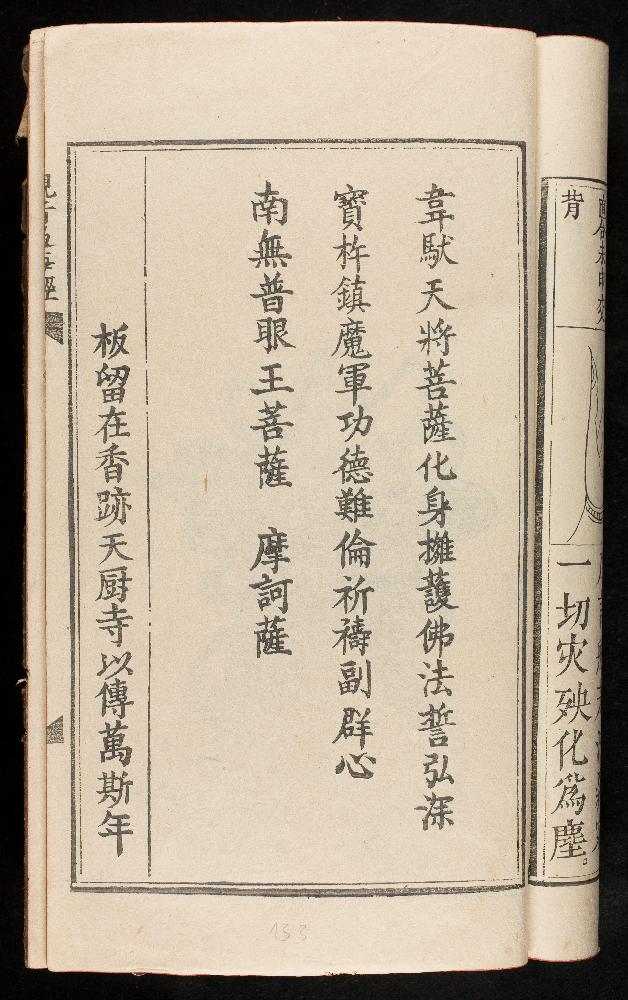 背
一切灾殃化為塵。
韋馱天將菩薩化身擁護佛法誓弘深
寶杵鎮魔軍功德難倫祈禱副群心
南無普眼王菩薩　摩訶薩
板留在香跡天厨寺以傳萬斯年
133